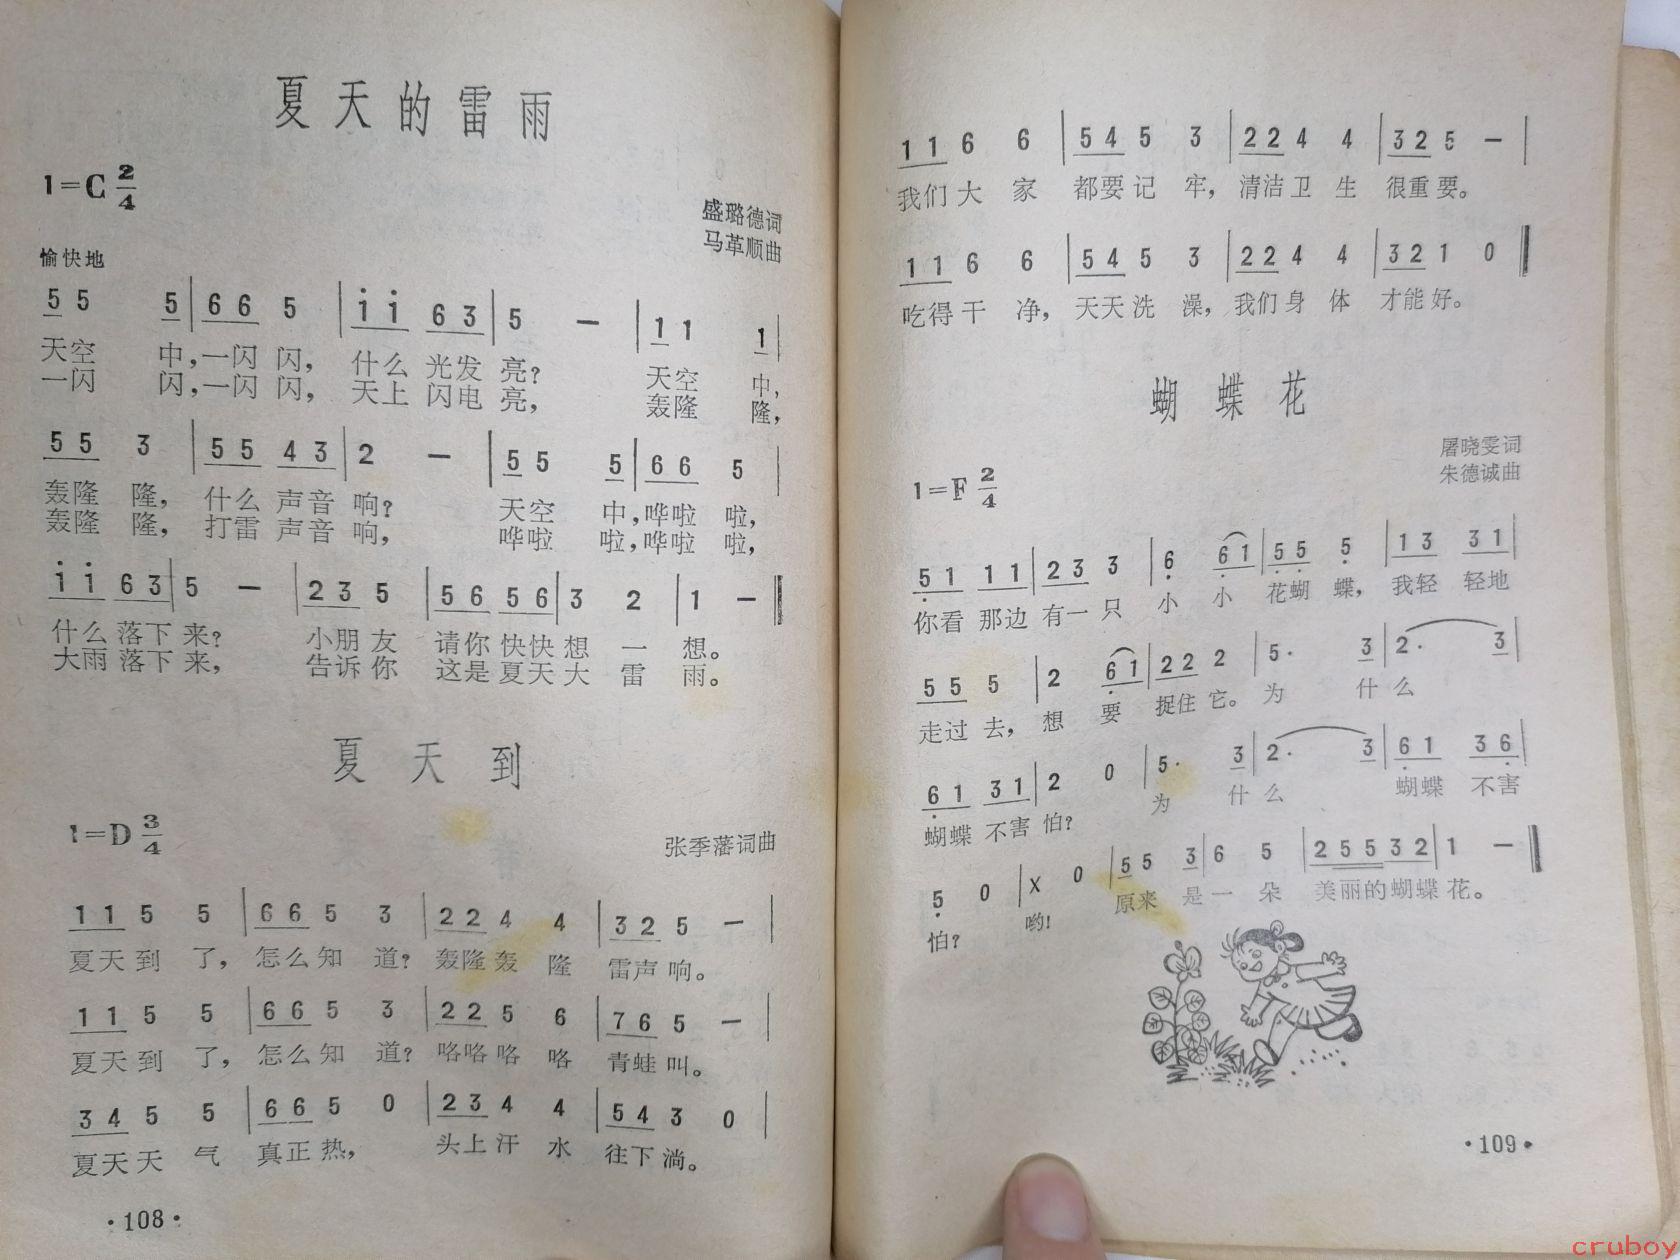 夏天的雷雨
1=C 2/4
盛璐德词
马革顺曲
愉快地
5 5 5 | 6 6 5 | i i 6 3 | 5 — | 1 1 1 |
天空 中,一闪 闪, 什么 光发 亮? 天空 中,
一闪 闪,一闪 闪, 天上 闪电 亮, 轰隆 隆,
5 5 3 | 5 5 4 3 | 2 — | 5 5 5 | 6 6 5 |
轰隆 隆, 什么 声音 响? 天空 中,哗啦 啦,
轰隆 隆, 打雷 声音 响, 哗啦 啦,哗啦 啦,
i i 6 3 | 5 — | 2 3 5 | 5 6 5 6 | 3 2 | 1 — ‖
什么 落下 来? 小朋 友 请你 快快 想 一 想。
大雨 落下 来, 告诉 你 这是 夏天 大 雷 雨。
夏天到
1=D 3/4
张季藩词曲
1 1 5 5 | 6 6 5 3 | 2 2 4 4 | 3 2 5 — |
夏天 到 了, 怎么 知 道? 轰隆 轰 隆 雷声 响。
1 1 5 5 | 6 6 5 3 | 2 2 5 6 | 7 6 5 — |
夏天 到 了, 怎么 知 道? 咯咯 咯 咯 青蛙 叫。
3 4 5 5 | 6 6 5 0 | 2 3 4 4 | 5 4 3 0 |
夏天 天 气 真正 热, 头上 汗 水 往下 淌。
·108·
1 1 6 6 | 5 4 5 3 | 2 2 4 4 | 3 2 5 — |
我们 大 家 都要 记 牢, 清洁 卫 生 很重 要。
1 1 6 6 | 5 4 5 3 | 2 2 4 4 | 3 2 1 0 ‖
吃得 干 净, 天天 洗 澡, 我们 身 体 才能 好。
蝴蝶花
屠晓雯词
朱德诚曲
1=F 2/4
5 1 1 1 | 2 3 3 | 6 6 1 | 5 5 5 | 1 3 3 1 |
你看 那边 有一 只 小 小 花蝴 蝶, 我轻 轻地
5 5 5 | 2 6 1 | 2 2 2 | 5· 3 | 2· 3 |
走过 去, 想 要 捉住 它。 为 什 么
6 1 3 1 | 2 0 | 5· 3 | 2· 3 | 6 1 3 6 |
蝴蝶 不害 怕? 为 什 么 蝴蝶 不害
5 0 | X 0 | 5 5 3 | 6 5 | 2 5 5 3 2 | 1 — ‖
怕? 哟! 原来 是一 朵 美丽的蝴蝶 花。
·109·
cruboy